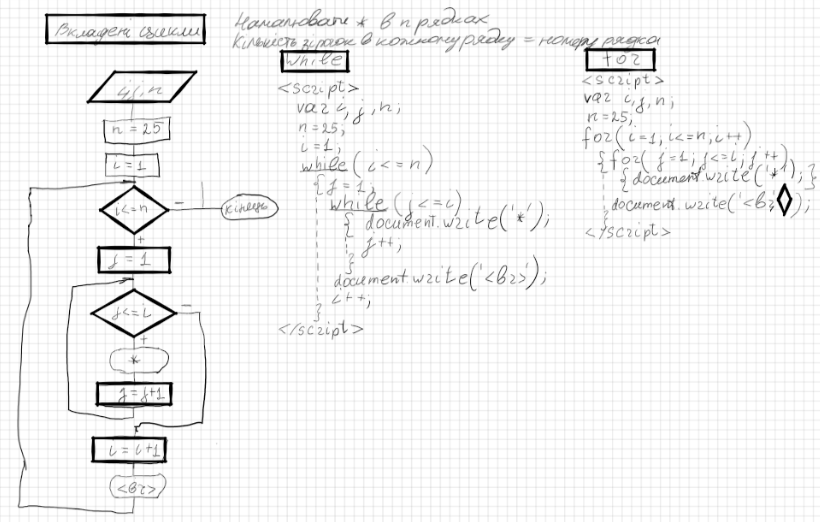 Вкладені цикли
Намалювати * в n рядках
Кількість зірок в кожному рядку = номеру рядка
i,j,n
n = 25
i = 1
i<=n
-
кінець
+
j = 1
j<=i
-
+
*
j = j+1
i = i+1
<br>
while
<script>
var i, j, n;
n = 25;
i = 1;
while (i<=n)
{ j = 1;
while (j<=i)
{ document.write('*');
j++;
}
document.write('<br>');
i++;
}
</script>
for
<script>
var i,j,n;
n = 25;
for(i=1,i<=n,i++)
{ for( j=1; j<=i; j++)
{ document.write('*'); }
document.write('<br
');
</script>